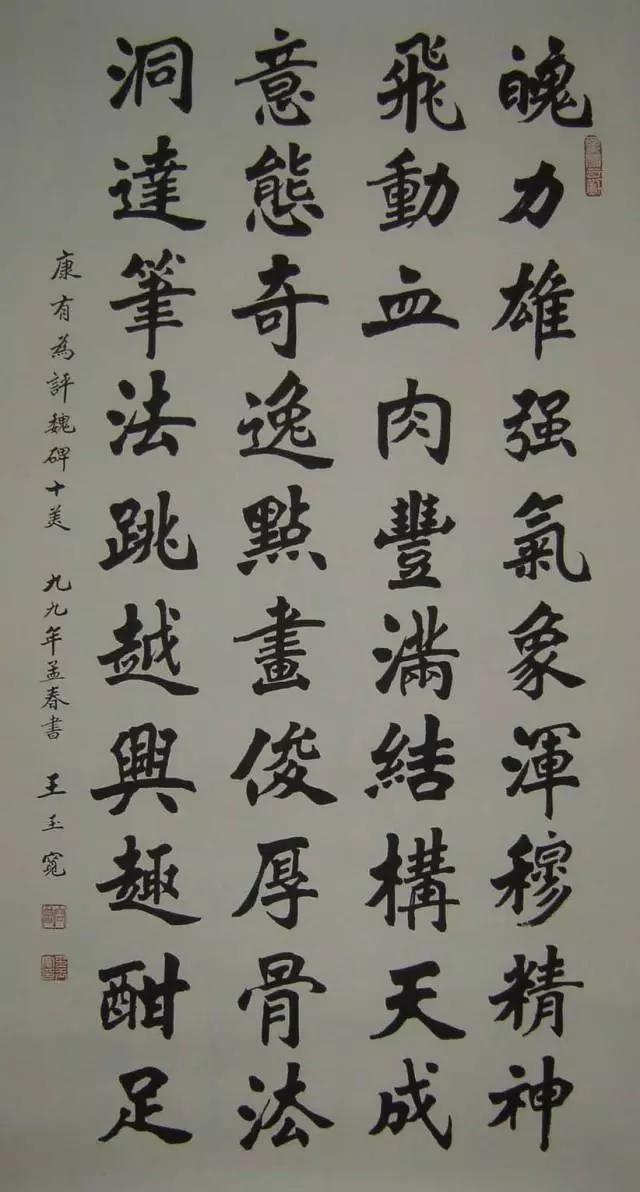 魄力雄强氣象渾穆精神
飛動血肉豐滿結構天成
意態奇逸點畫俊厚骨法
洞達筆法跳越興趣酣足
康有為評魏碑十美 九九年孟春書 王玉寬